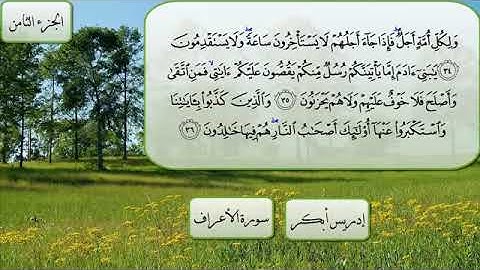 الجزء الثامن
وَلِكُلِّ أُمَّةٍ أَجَلٌ ۖ فَإِذَا جَآءَ أَجَلُهُمْ لَا يَسْتَأْخِرُونَ سَاعَةً ۖ وَلَا يَسْتَقْدِمُونَ
﴿٣٤﴾ يَٰبَنِىٓ ءَادَمَ إِمَّا يَأْتِيَنَّكُمْ رُسُلٌ مِّنكُمْ يَقُصُّونَ عَلَيْكُمْ ءَايَٰتِى ۙ فَمَنِ ٱتَّقَىٰ
وَأَصْلَحَ فَلَا خَوْفٌ عَلَيْهِمْ وَلَا هُمْ يَحْزَنُونَ ﴿٣٥﴾ وَٱلَّذِينَ كَذَّبُوا۟ بِـَٔايَٰتِنَا
وَٱسْتَكْبَرُوا۟ عَنْهَآ أُو۟لَٰٓئِكَ أَصْحَٰبُ ٱلنَّارِ ۖ هُمْ فِيهَا خَٰلِدُونَ ﴿٣٦﴾
إدريس أبكر
سورة الأعراف